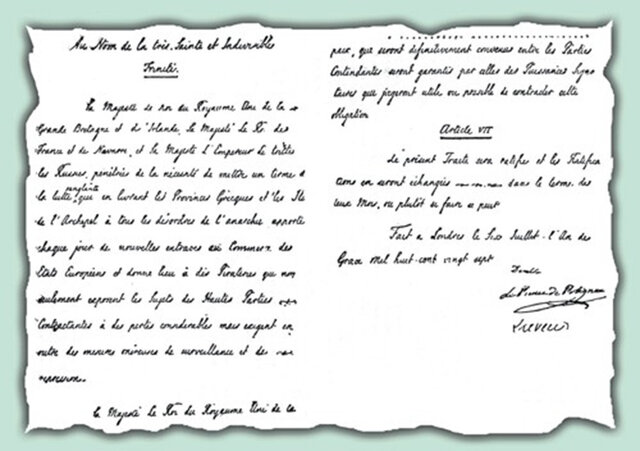 Au Nom de la très Sainte et Indivisible
Trinité.
Sa Majesté le roi du Royaume Uni de la
Grande Bretagne et d'Irlande, Sa Majesté le Roi de
France et de Navarre, et Sa Majesté L'Empereur de toutes
les Russies, pénétrées de la nécessité de mettre un terme à
sanglante
la lutte, que en livrant les Provinces Grecques et les Iles
de l'Archipel à tous les désordres de l'anarchie apporte
chaque jour de nouvelles entraves au Commerce des
Etats Européens et donne lieu à des Pirateries qui non
seulement exposent les Sujets des Hautes Parties
Contractantes à des pertes considérables mais exigent en
outre des mesures onéreuses de surveillance et de
repression.
Sa Majesté Le Roi du Royaume Uni de la
paix, que seront définitivement convenus entre les Parties
Contendantes seront garantis par celles des Puissances Signa-
taires que jugeront utile ou possible de contracter cette
obligation
Article VII
Le présent Traité sera ratifié et les Ratifica-
tions en seront échangées dans le terme des
deux Mois, ou plutôt si faire se peut
Fait à Londres le Six Juillet l'An de
Grace Mil huit-cent vingt sept
Dudley
Le Prince de Polignac
Lieven